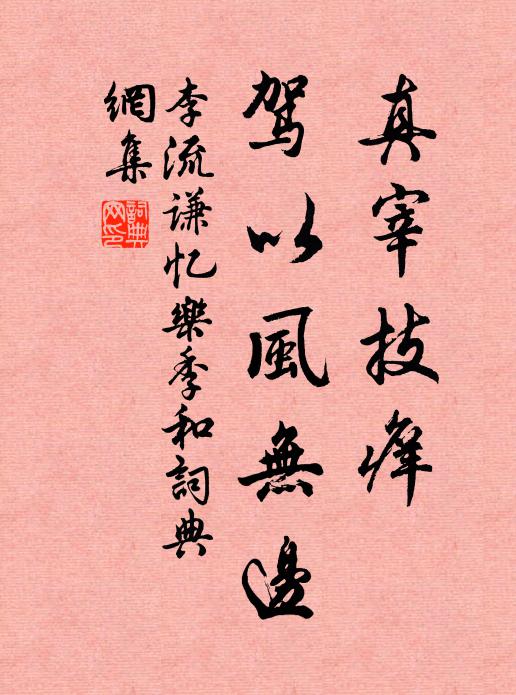 真宰技痒
駕以風無邊
李流謙忆樂季和詞典
網集
詞典
网印